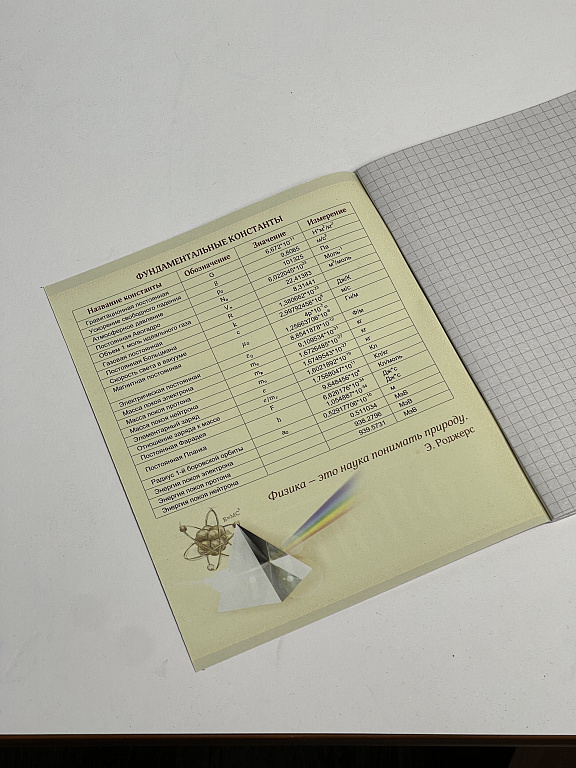 ФУНДАМЕНТАЛЬНЫЕ КОНСТАНТЫ
Название константы Обозначение Значение Измерение
Гравитационная постоянная G 6,672*10⁻¹¹ Н*м²/м²
Ускорение свободного падения g 9,8065 м/с²
Атмосферное давление p₀ 101325 Па
Постоянная Авогадро Nₐ 6,022045*10²³ Моль⁻¹
Объем 1 моль идеального газа V₀ 22,41383 м³/моль
Газовая постоянная R 8,31441
Постоянная Больцмана k 1,380662*10⁻²³ Дж/К
Скорость света в вакууме c 2,99792458*10⁸ м/с
Магнитная постоянная μ₀ 4p*10⁻⁷ Гн/м
1,25663706*10⁻⁶
Электрическая постоянная ε₀ 8,8541878*10⁻¹² Ф/м
Масса покоя электрона mₑ 9,109534*10⁻³¹ кг
Масса покоя протона 1,6726485*10⁻²⁷ кг
Масса покоя нейтрона 1,6749543*10⁻²⁷ кг
Элементарный заряд e 1,6021892*10⁻¹⁹ Кл
Отношение заряда к массе e/mₑ 1,7588047*10¹¹ Кл/кг
Постоянная Фарадея F 9,648456*10⁴ Кл/моль
Постоянная Планка h 6,626176*10⁻³⁴ Дж*с
1,054887*10⁻³⁴ Дж*с
Радиус 1-й боровской орбиты a₀ 0,52917706*10⁻¹⁰ м
Энергия покоя электрона 0,511034 МэВ
Энергия покоя протона 938,2796 МэВ
Энергия покоя нейтрона 939,5731 МэВ
Физика – это наука понимать природу.
Э. Роджерс
E=MC²